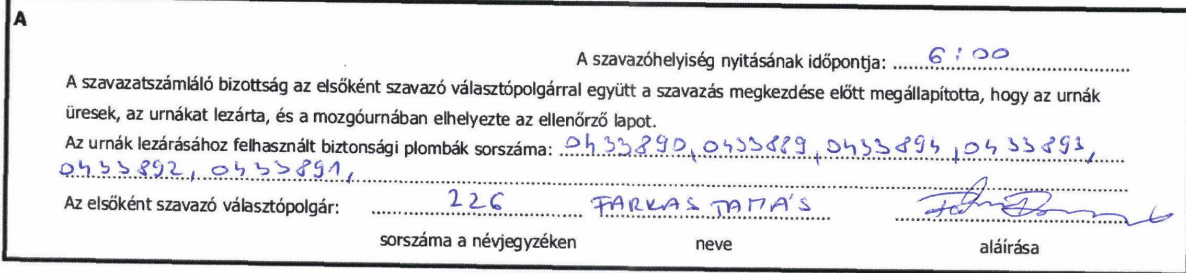 A
A szavazóhelyiség nyitásának időpontja: 6:00
A szavazatszámláló bizottság az elsőként szavazó választópolgárral együtt a szavazás megkezdése előtt megállapította, hogy az urnák
üresek, az urnákat lezárta, és a mozgóurnában elhelyezte az ellenőrző lapot.
Az urnák lezárásához felhasznált biztonsági plombák sorszáma: 0433890, 0433889, 0433894, 0433893,
0433892, 0433891,
Az elsőként szavazó választópolgár: 226 FARKAS TAMÁS
sorszáma a névjegyzéken neve aláírása